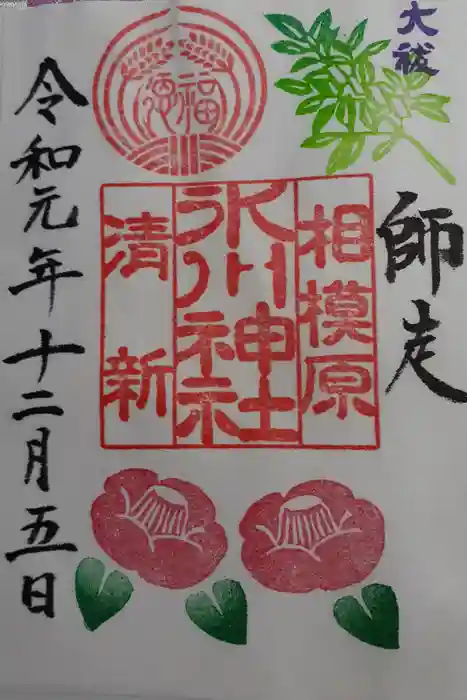 大祓
師走
福德
相模原
氷川神社
清新
令和元年十二月五日